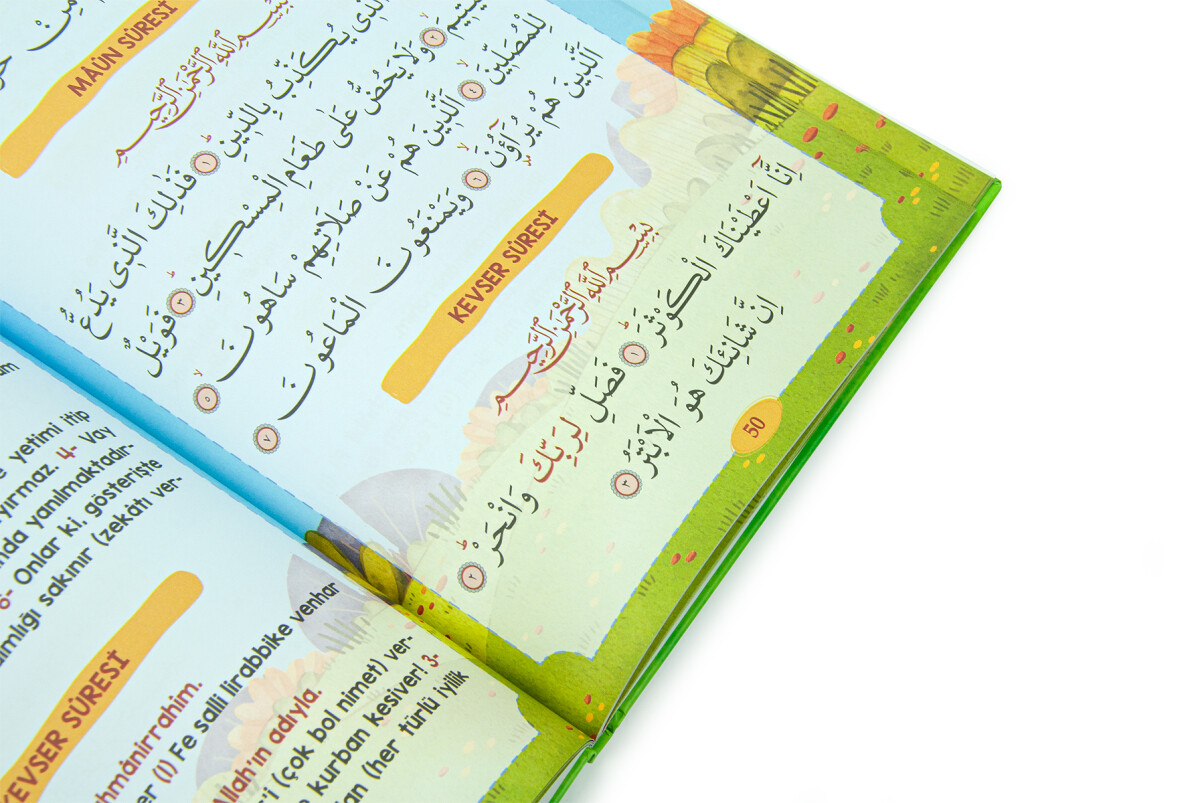 مِنْ
MÂÛN SÛRESİ
بِسْمِ اللّٰهِ الرَّحْمٰنِ الرَّحِيمِ
الَّذِى يُكَذِّبُ بِالدِّينِ ١ فَذٰلِكَ الَّذِى يَدُعُّ
٢ وَلَا يَحُضُّ عَلٰى طَعَامِ الْمِسْكِينِ ٣ فَوَيْلٌ
لِلْمُصَلِّينَ ٤ اَلَّذِينَ هُمْ عَنْ صَلَاتِهِمْ سَاهُونَ ٥
اَلَّذِينَ هُمْ يُرَٓاؤُنَ ٦ وَيَمْنَعُونَ الْمَاعُونَ ٧
KEVSER SÛRESİ
بِسْمِ اللّٰهِ الرَّحْمٰنِ الرَّحِيمِ
اِنَّٓا اَعْطَيْنَاكَ الْكَوْثَرَ ١ فَصَلِّ لِرَبِّكَ وَانْحَرْ ٢
اِنَّ شَانِئَكَ هُوَ الْاَبْتَرُ ٣
50
yetimi itip
yırmaz. 4- Vay
nda yanılmaktadır-
6- Onlar ki, gösterişte
amlığı sakınır (zekâtı ver-
KEVSER SÛRESİ
hmânirrahim.
er (1) Fe salli lirabbike venhar
Allah'ın adıyla.
'i (çok bol nimet) ver-
kurban kesiver! 3-
an (her türlü iyilik